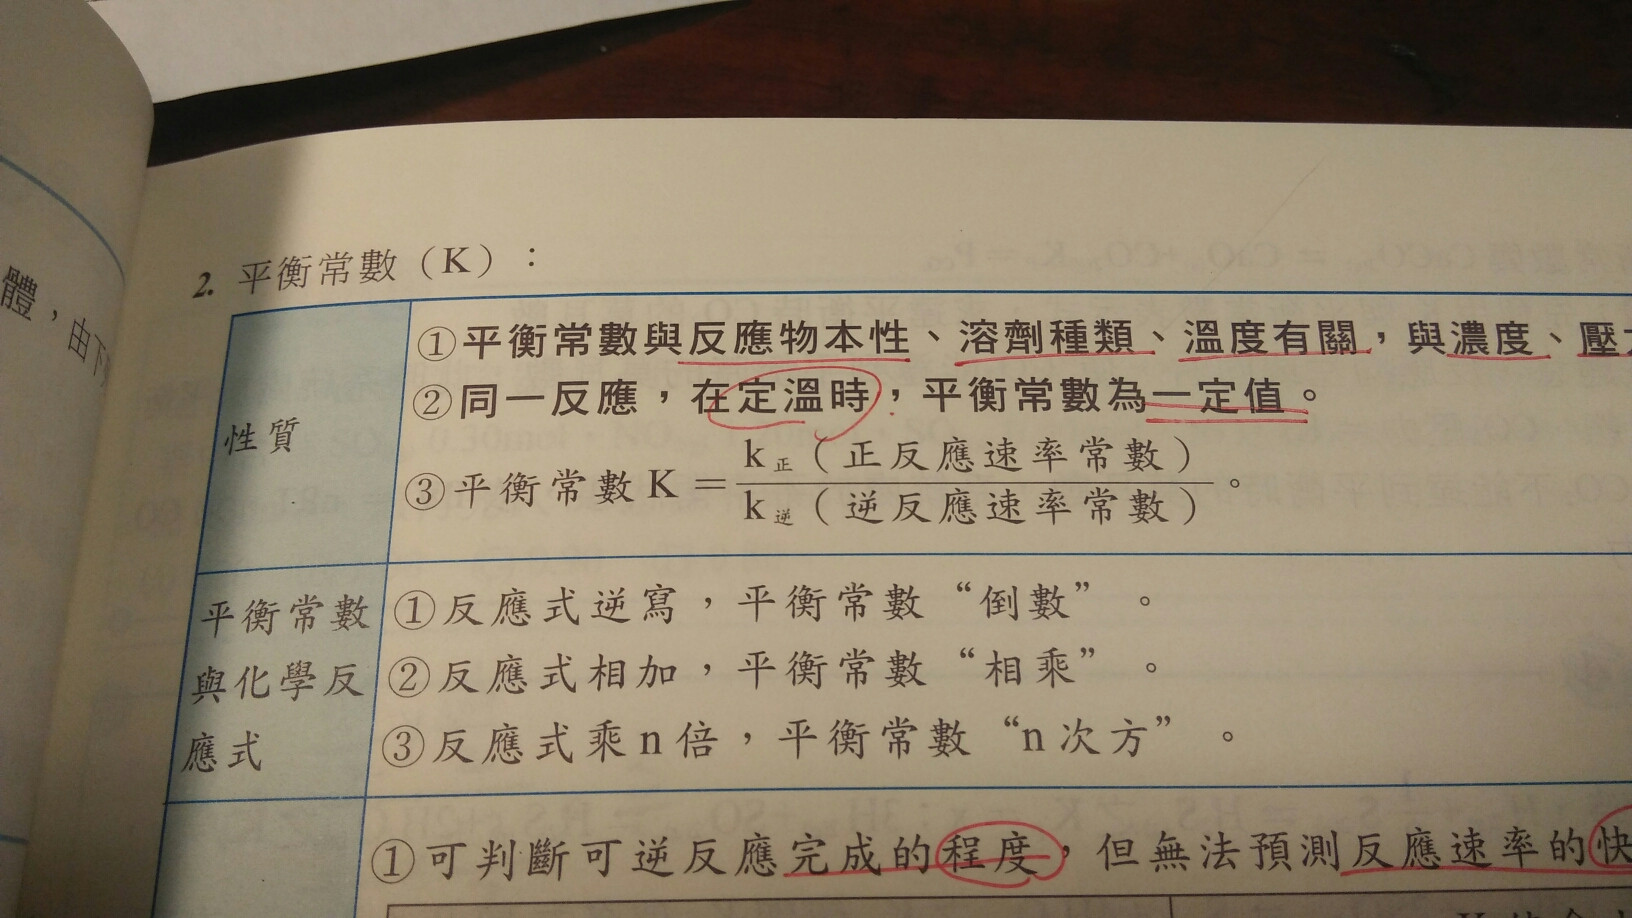 體，由下
2. 平衡常數（K）：
性質
①平衡常數與反應物本性、溶劑種類、溫度有關，與濃度、壓
②同一反應，在定溫時，平衡常數為一定值。
③平衡常數K＝k正（正反應速率常數）
k逆（逆反應速率常數）。
平衡常數
與化學反
應式
①反應式逆寫，平衡常數“倒數”。
②反應式相加，平衡常數“相乘”。
③反應式乘n倍，平衡常數“n次方”。
①可判斷可逆反應完成的程度，但無法預測反應速率的快